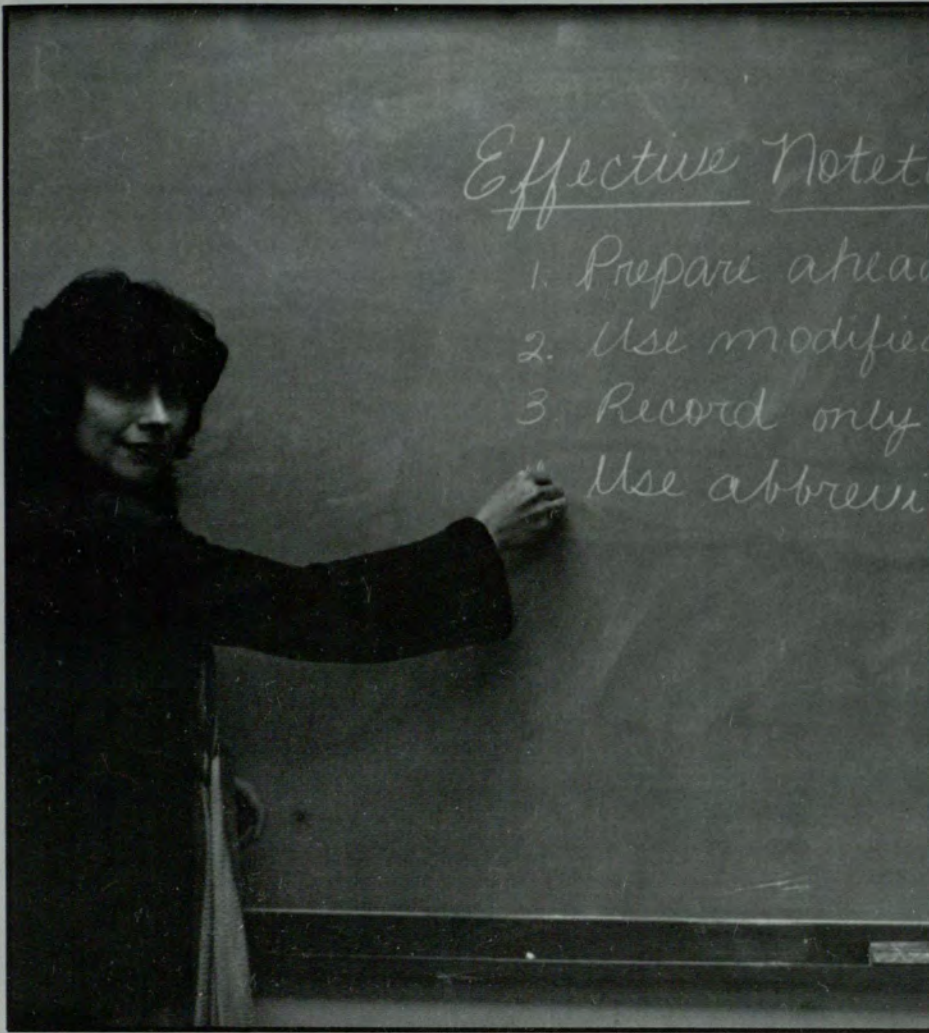 Effective Notet
1. Prepare ahead
2. Use modified
3. Record only
Use abbrevi